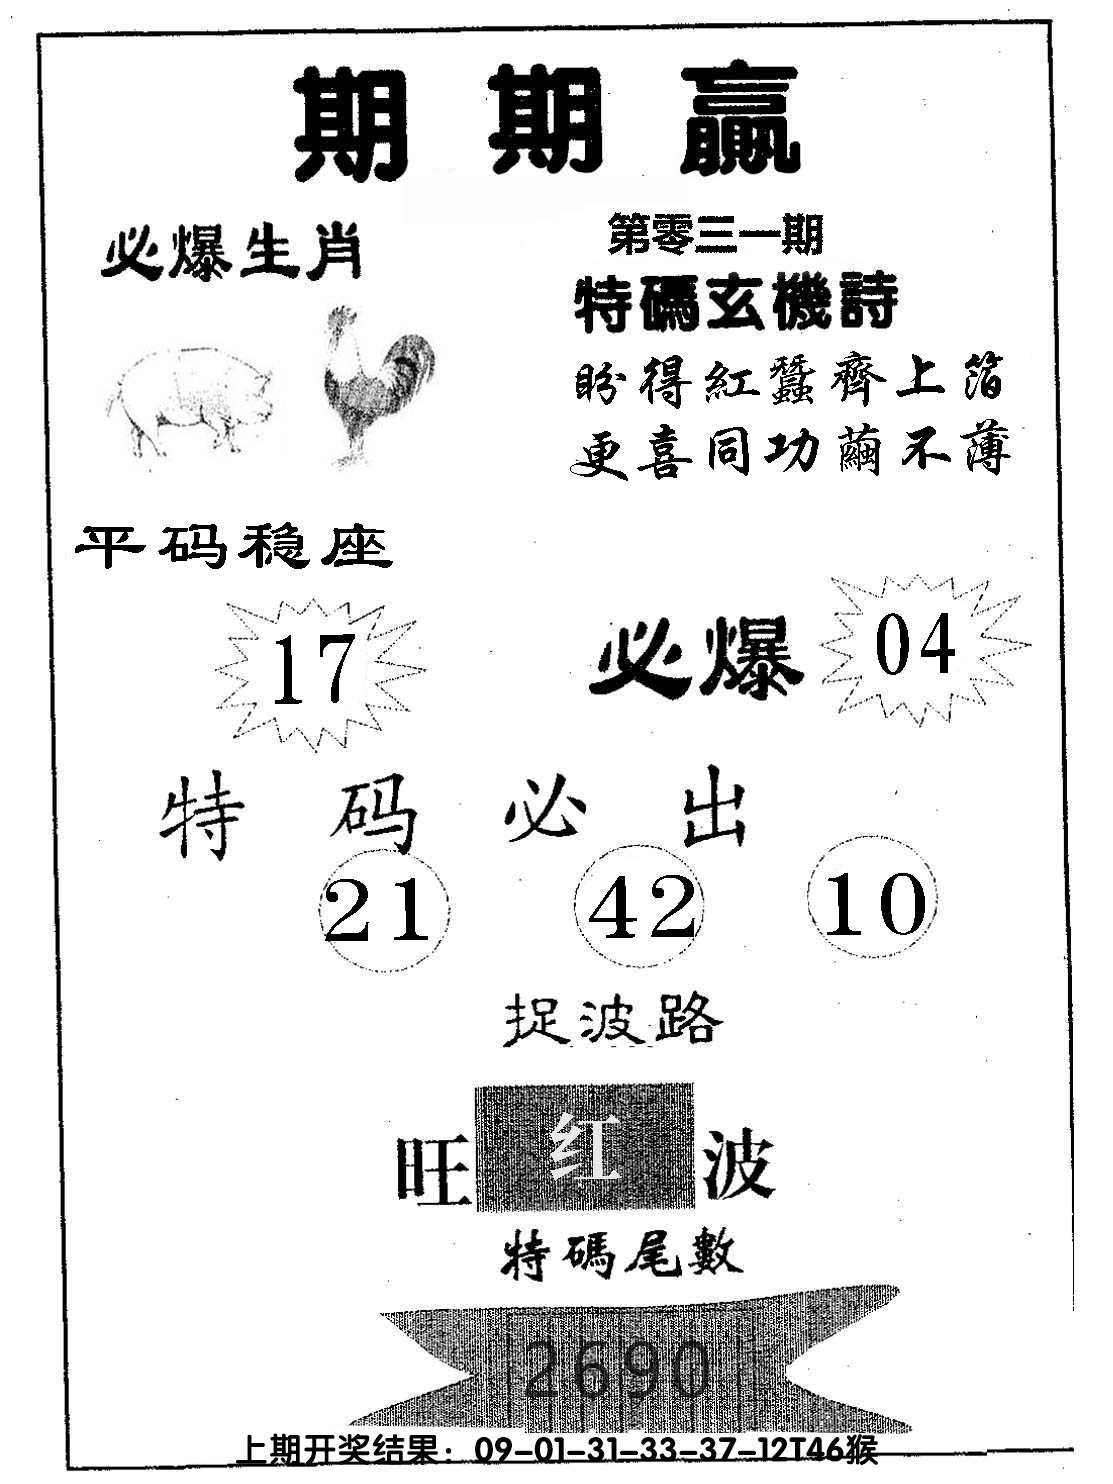 期期赢
必爆生肖
第零三一期
特碼玄機詩
盼得紅蠶齊上箔
更喜同功繭不薄
平码稳座
17
必爆 04
特码必出
21 42 10
捉波路
旺 红 波
特碼尾數
2690
上期开奖结果：09-01-31-33-37-12T46猴